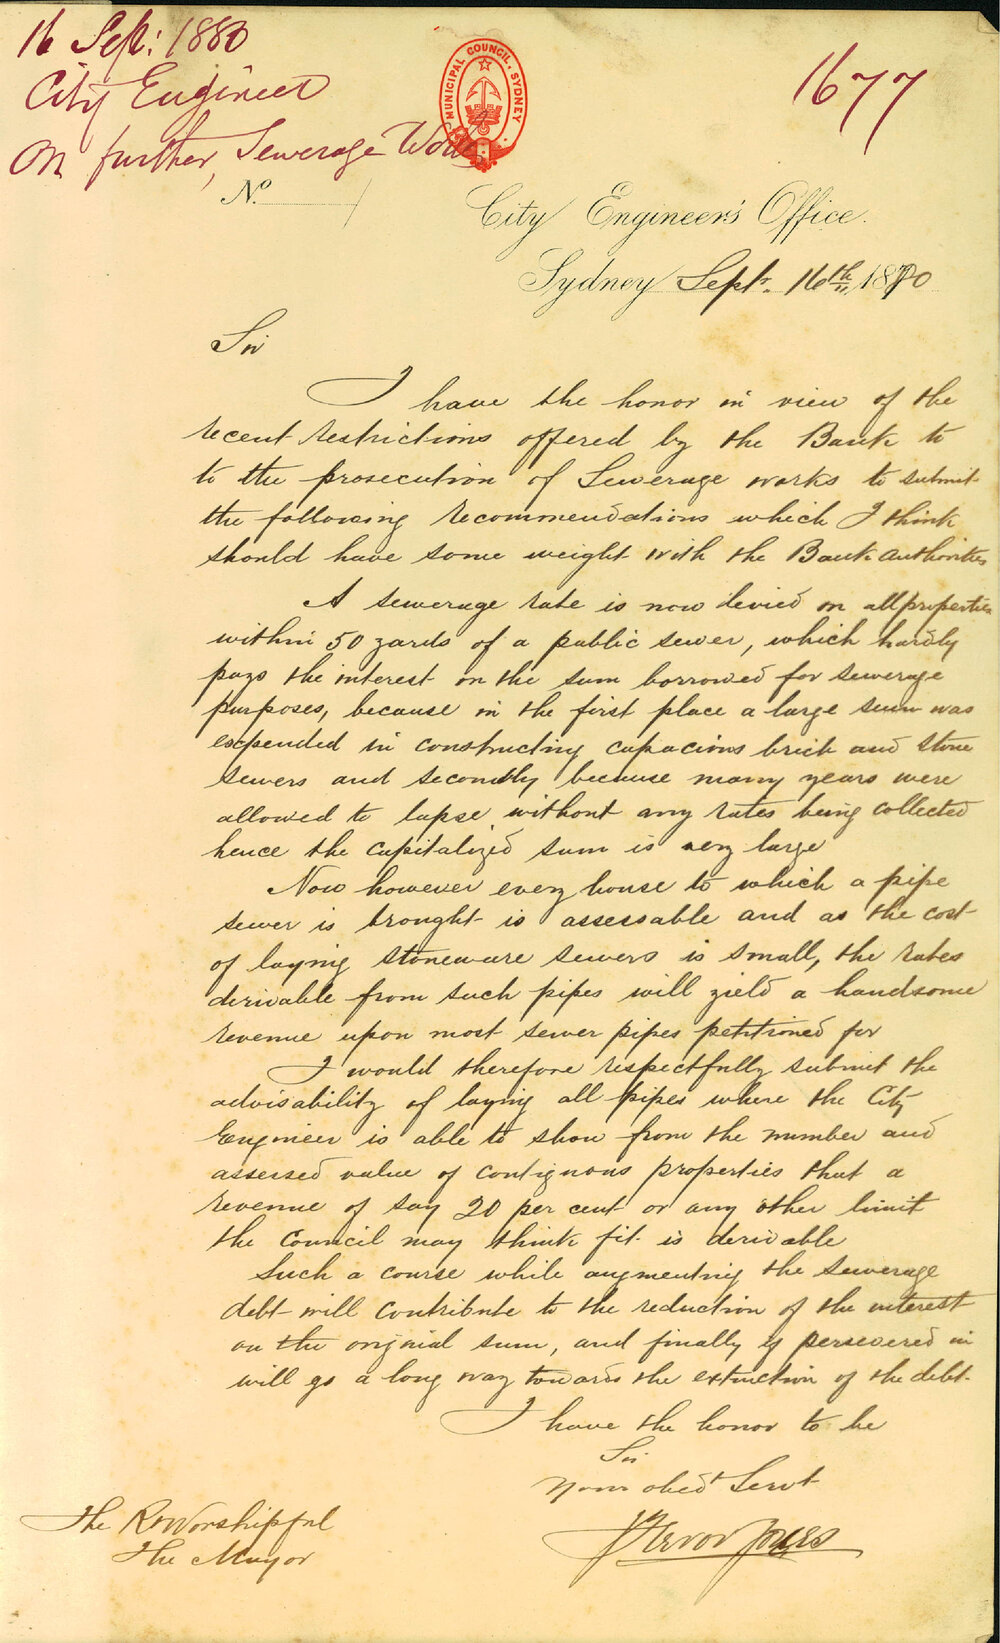 16 Sept: 1880
City Engineer
On further Sewerage Works
1677
MUNICIPAL COUNCIL, SYDNEY
No.
City Engineer's Office.
Sydney Sept. 16th 1880
Sir
I have the honor in view of the
recent restrictions offered by the Bank to
to the prosecution of Sewerage works to submit
the following recommendations which I think
should have some weight with the Bank authorities
A sewerage rate is now levied on all properties
within 50 yards of a public sewer, which hardly
pays the interest on the sum borrowed for sewerage
purposes, because in the first place a large sum was
expended in constructing capacious brick and stone
sewers and secondly because many years were
allowed to lapse without any rates being collected
hence the capitalized sum is very large
Now however every house to which a pipe
sewer is brought is assessable and as the cost
of laying stoneware sewers is small, the rates
derivable from such pipes will yield a handsome
revenue upon most sewer pipes petitioned for
I would therefore respectfully submit the
advisability of laying all pipes where the City
Engineer is able to show from the number and
assessed value of contiguous properties that a
revenue of say 20 per cent or any other limit
the Council may think fit is derivable
Such a course while augmenting the Sewerage
debt will contribute to the reduction of the interest
on the original sum, and finally if persevered in
will go a long way towards the extinction of the debt.
I have the honor to be
Sir
Your obedt Servt
Trevor Jones
The Rt Worshipful
The Mayor